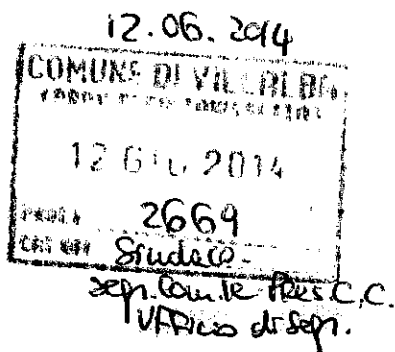 12.06.2014
COMUNE DI VILLALBA
12 GIU. 2014
PROT. N 2669
Sindaco-
Segr. Com.le Pres. C.C.
Ufficio di Segr.